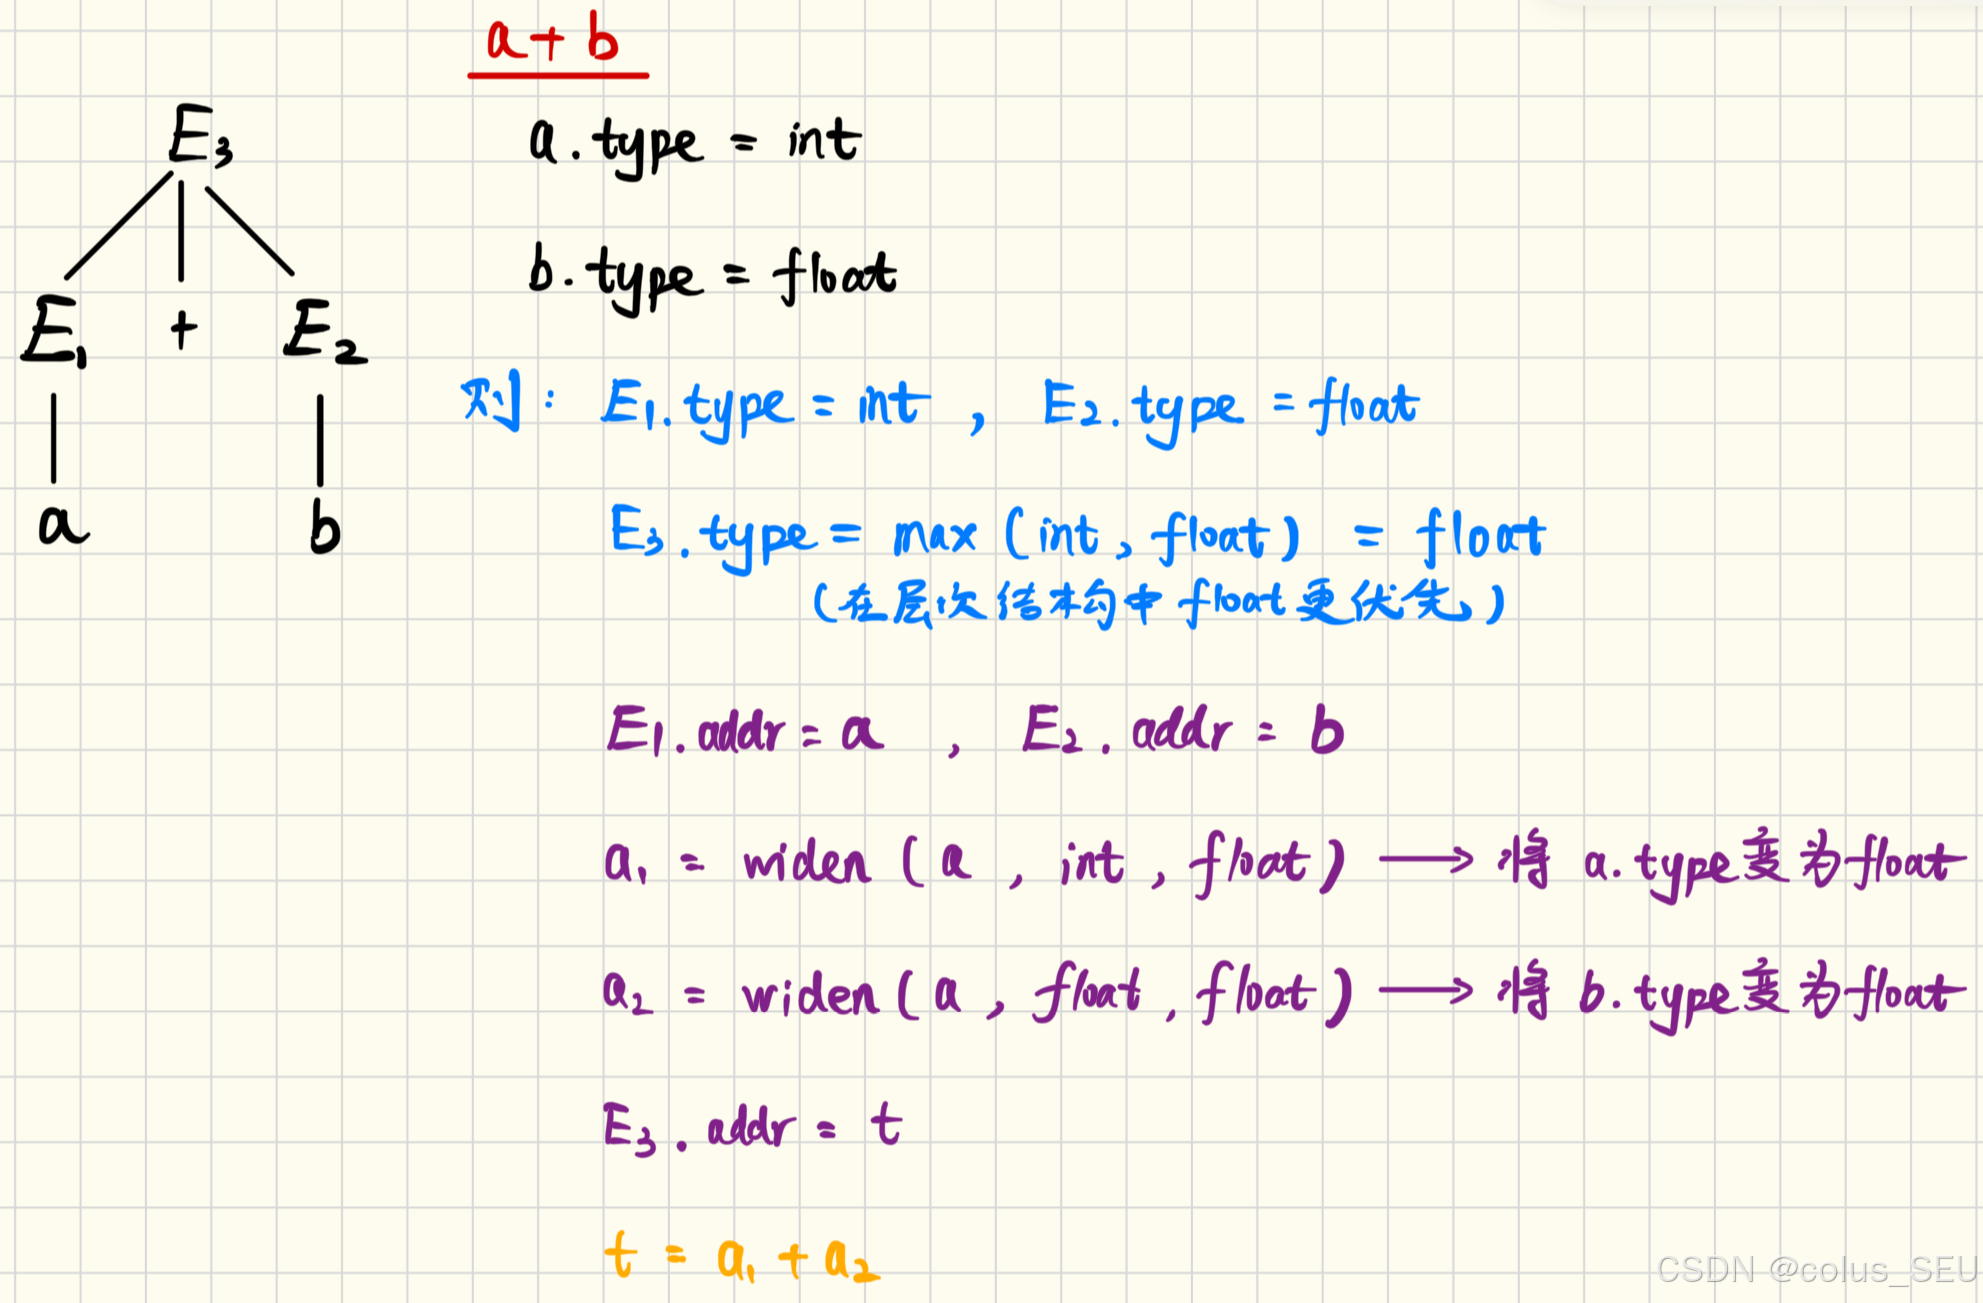 a + b
E₃
a.type = int
b.type = float
E₁ + E₂
a b
则: E₁.type = int , E₂.type = float
E₃.type = max (int, float) = float
(在层次结构中 float 更优先)
E₁.addr = a , E₂.addr = b
a₁ = widen (a, int, float) → 将 a.type变为float
a₂ = widen (a, float, float) → 将 b.type变为float
E₃.addr = t
t = a₁ + a₂
CSDN @colus_SEU